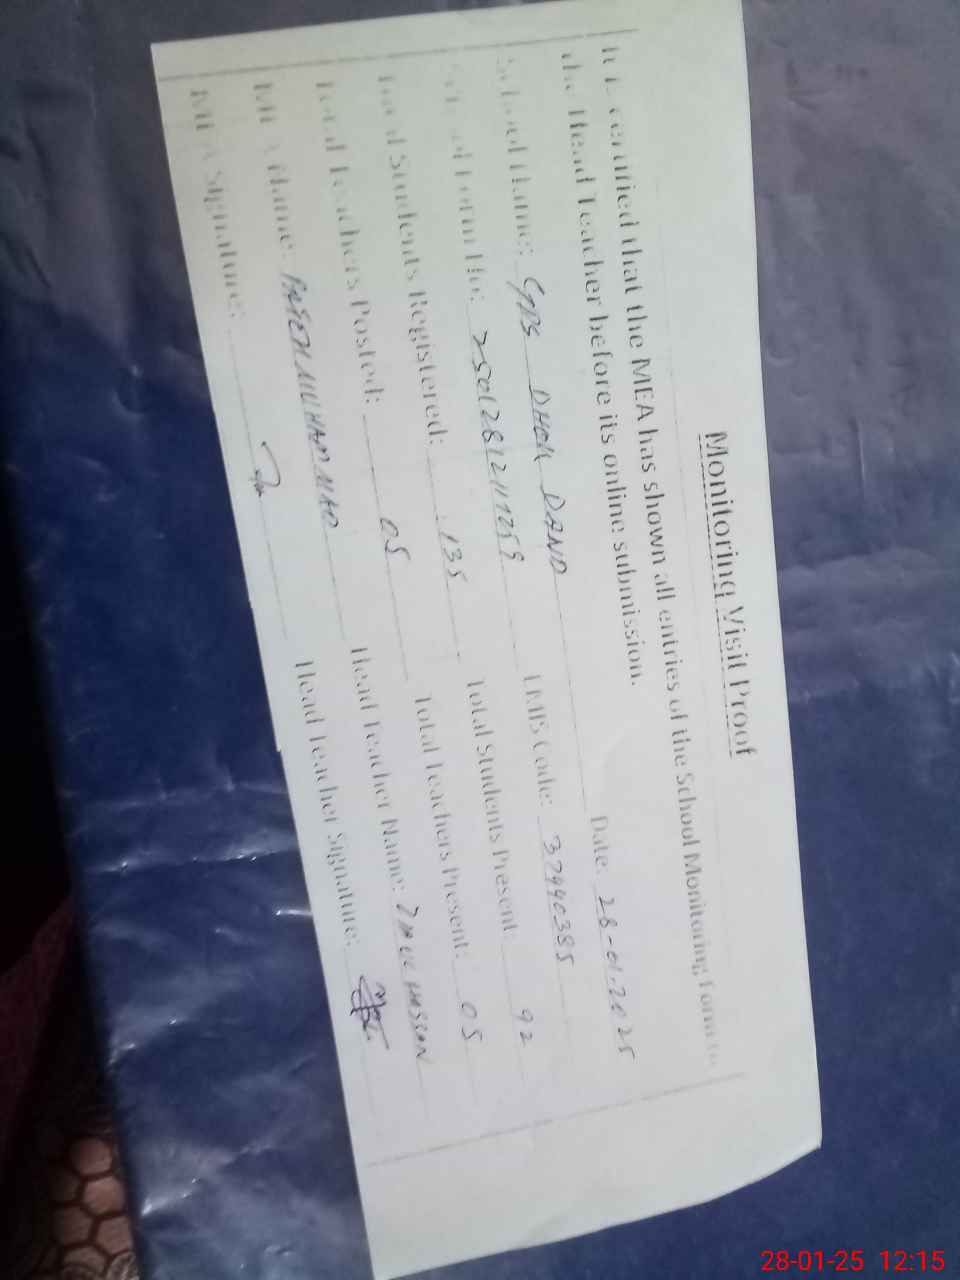 Monitoring Visit Proof
It is certified that the MEA has shown all entries of the School Monitoring Form to
the Head Teacher before its online submission.
Date: 28-01-2025
School Name: GPS DHOK DAND
EMIS Code: 37440385
School Form No: 250128121125
Total Students Present: 92
Total Students Registered: 135
Total Teachers Present: 05
Total Teachers Posted: 05
Head Teacher Name: HASSAN
MEA Name: MUHAMMAD
Head Teacher Signature:
MEA Signature:
28-01-25 12:15